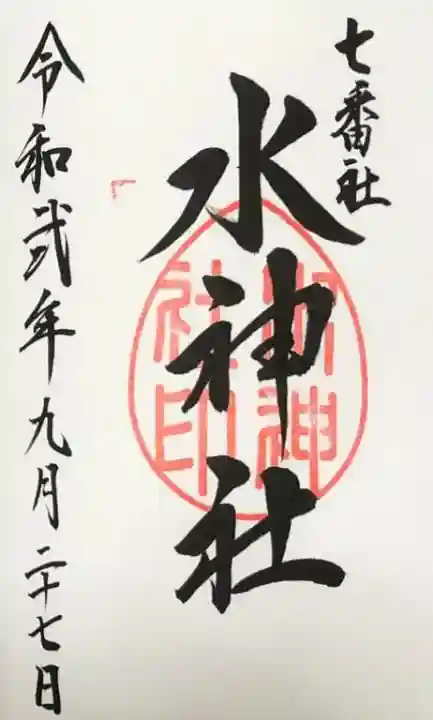 七番社
水神社
水神
社印
令和弐年九月二十七日